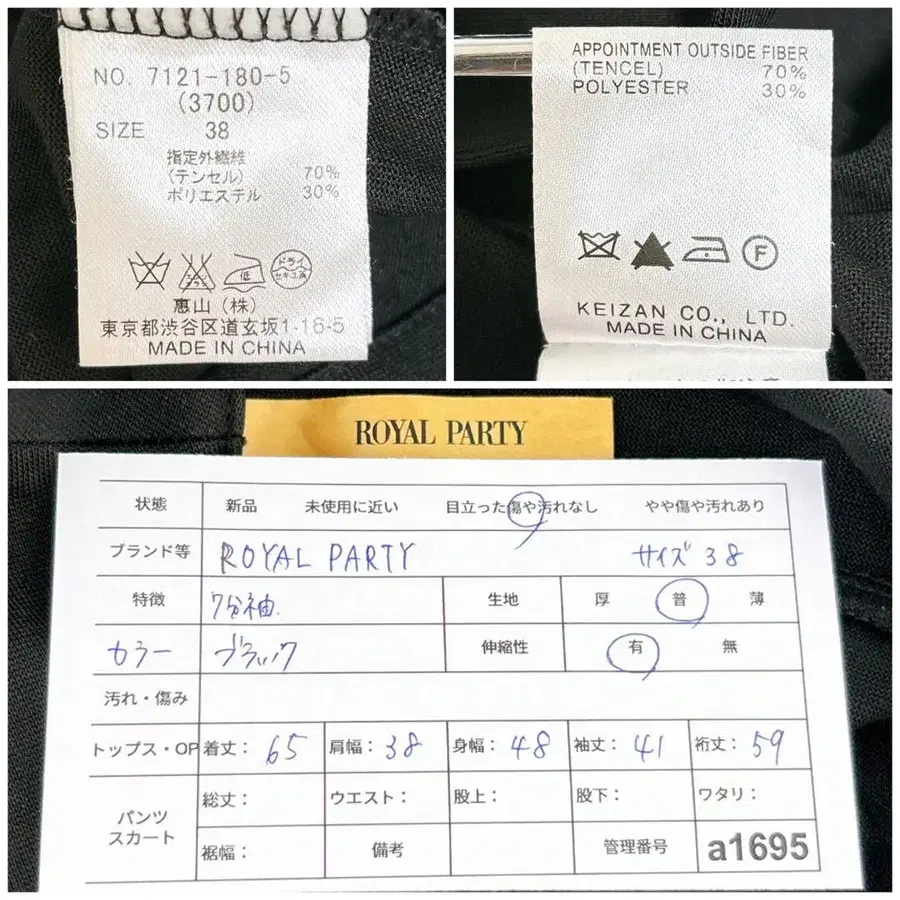 NO. 7121-180-5
(3700)
SIZE 38
指定外繊維
(テンセル) 70%
ポリエステル 30%
低
ドライ
セキユ系
惠山 (株)
東京都渋谷区道玄坂1-16-5
MADE IN CHINA
APPOINTMENT OUTSIDE FIBER
(TENCEL) 70%
POLYESTER 30%
F
KEIZAN CO., LTD.
MADE IN CHINA
ROYAL PARTY
状態 新品 未使用に近い 目立った傷や汚れなし やや傷や汚れあり
ブランド等 ROYAL PARTY サイズ 38
特徴 7分袖 生地 厚 普 薄
カラー ブラック 伸縮性 有 無
汚れ・傷み
トップス・OP 着丈: 65 肩幅: 38 身幅: 48 袖丈: 41 裄丈: 59
パンツ
スカート
総丈: ウエスト: 股上: 股下: ワタリ:
裾幅: 備考 管理番号 a1695